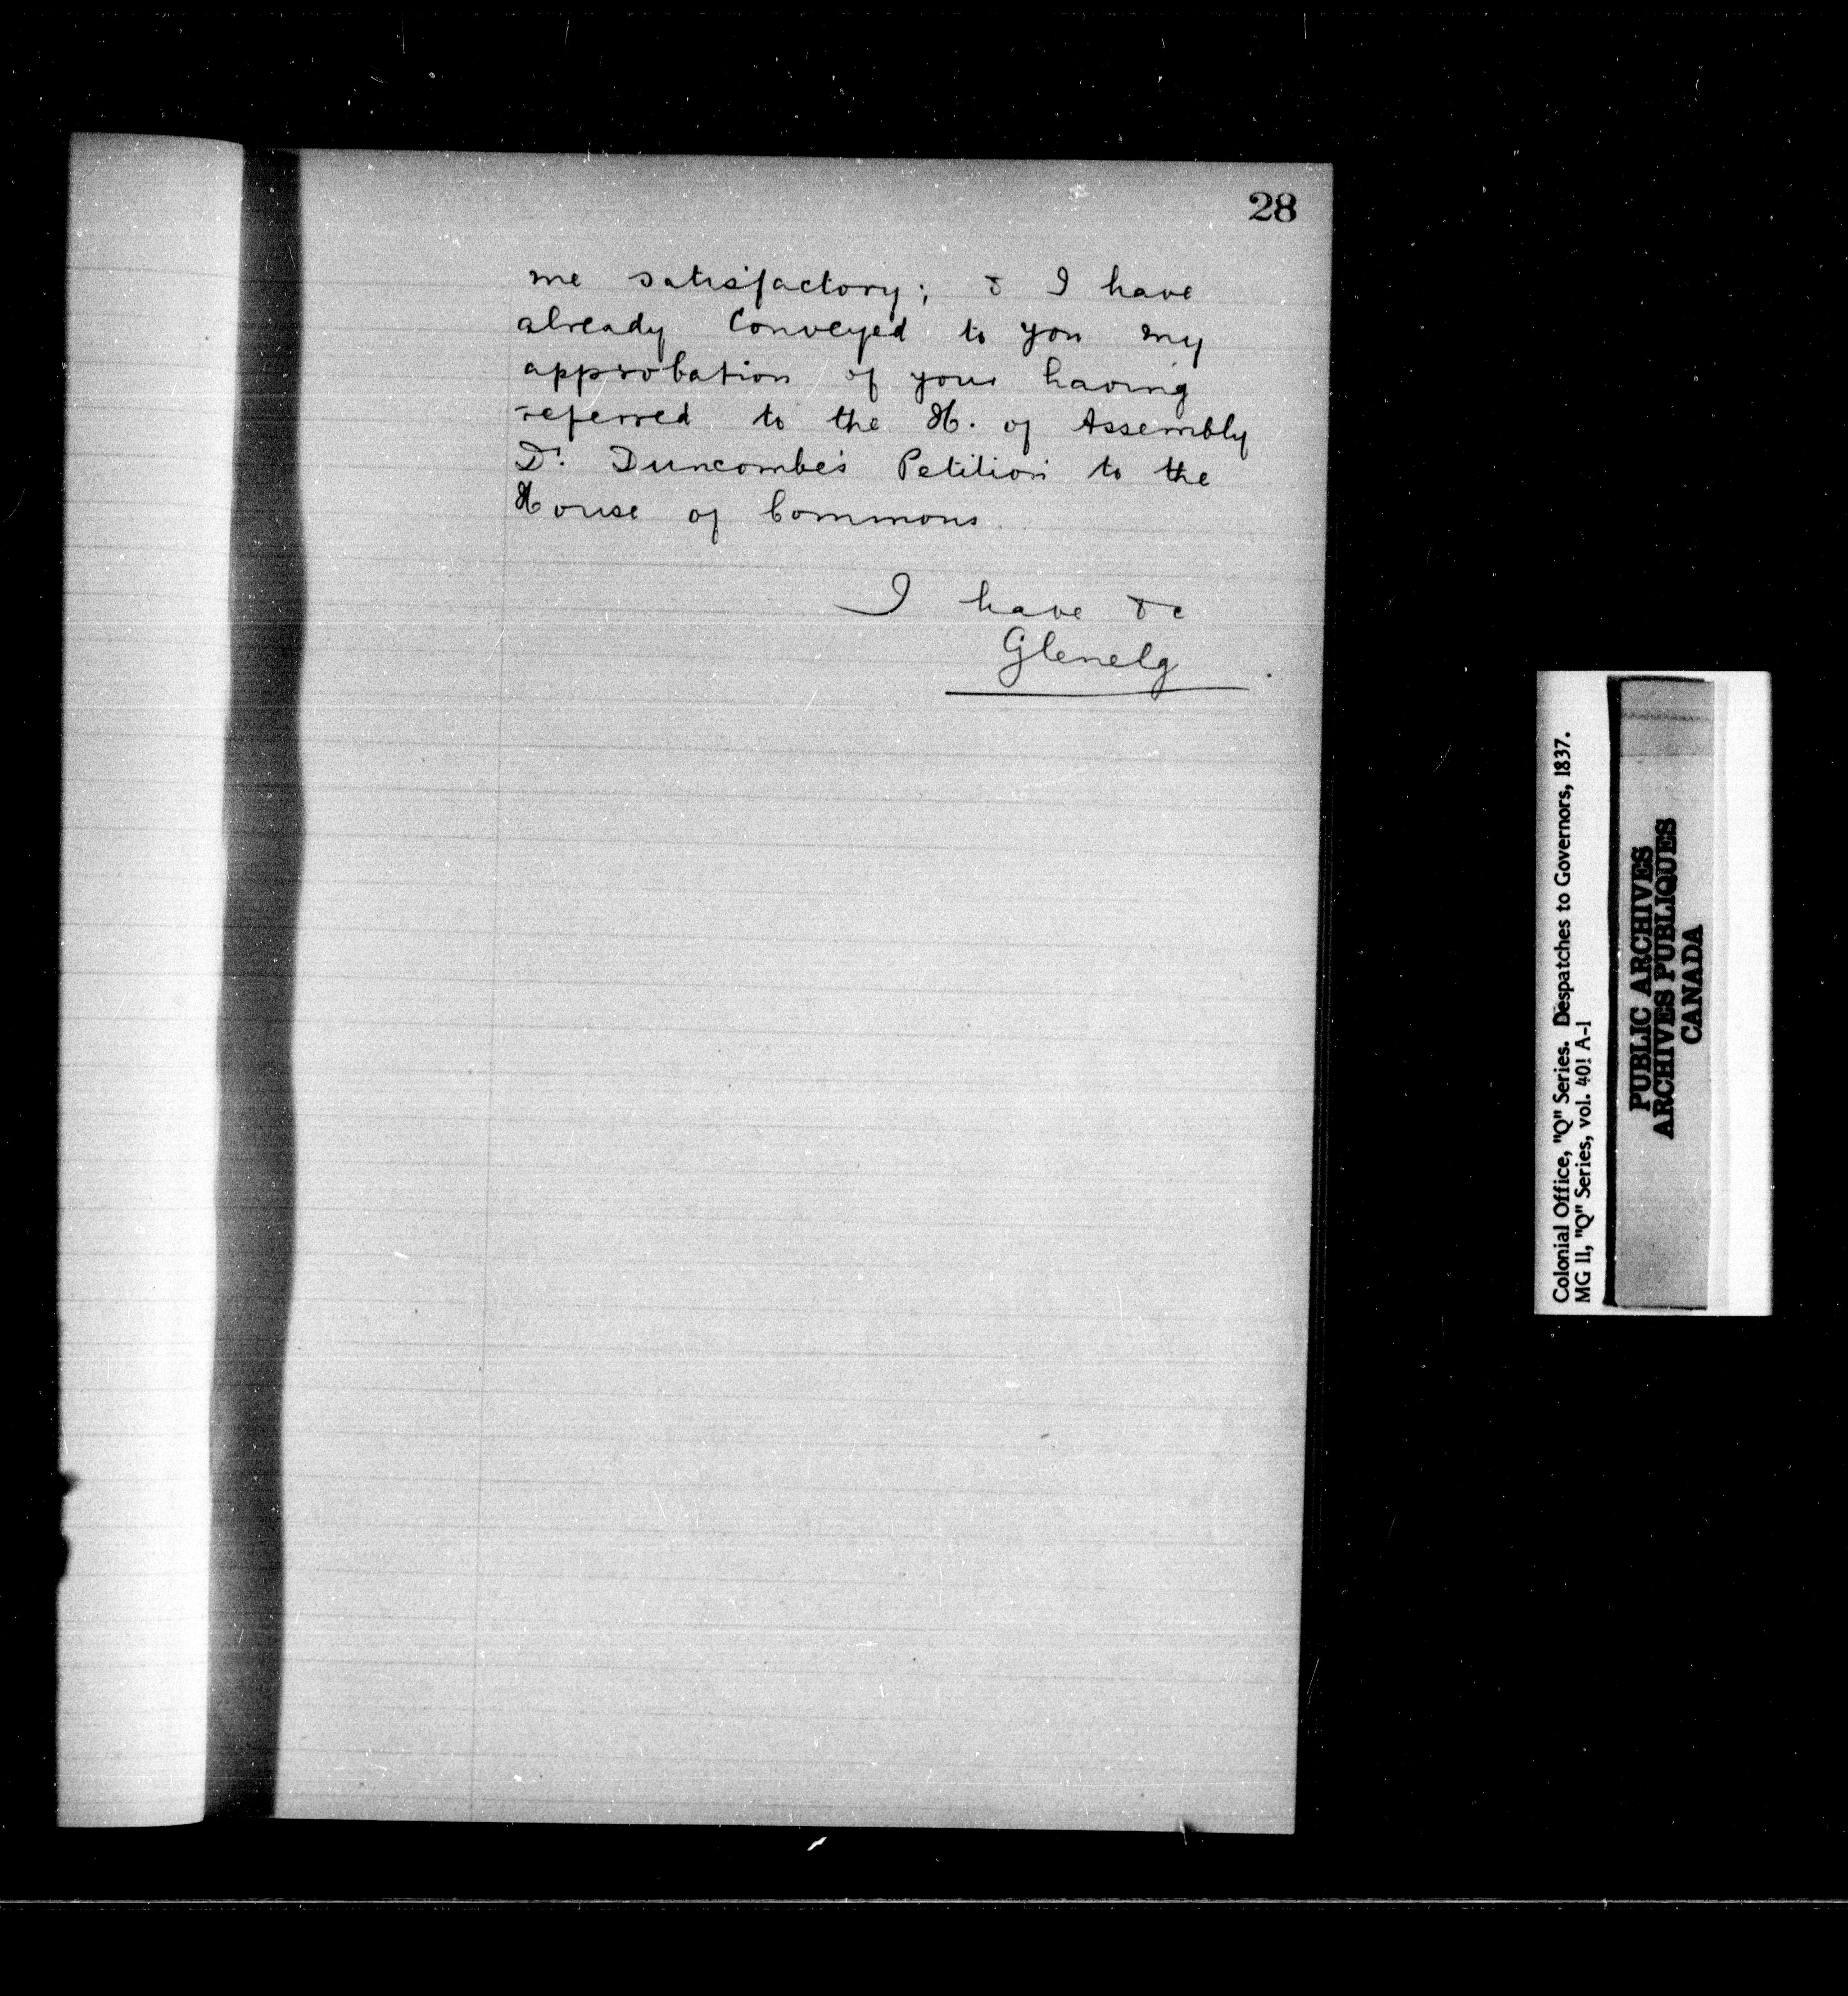 28
me satisfactory; & I have
already Conveyed to you my
approbation of your having
referred to the H. of Assembly
Dr. Duncombe's Petition to the
House of Commons.
I have &c
Glenelg
Colonial Office, "Q" Series. Despatches to Governors, 1837.
MG 11, "Q" Series, vol. 401 A-1
PUBLIC ARCHIVES
ARCHIVES PUBLIQUES
CANADA